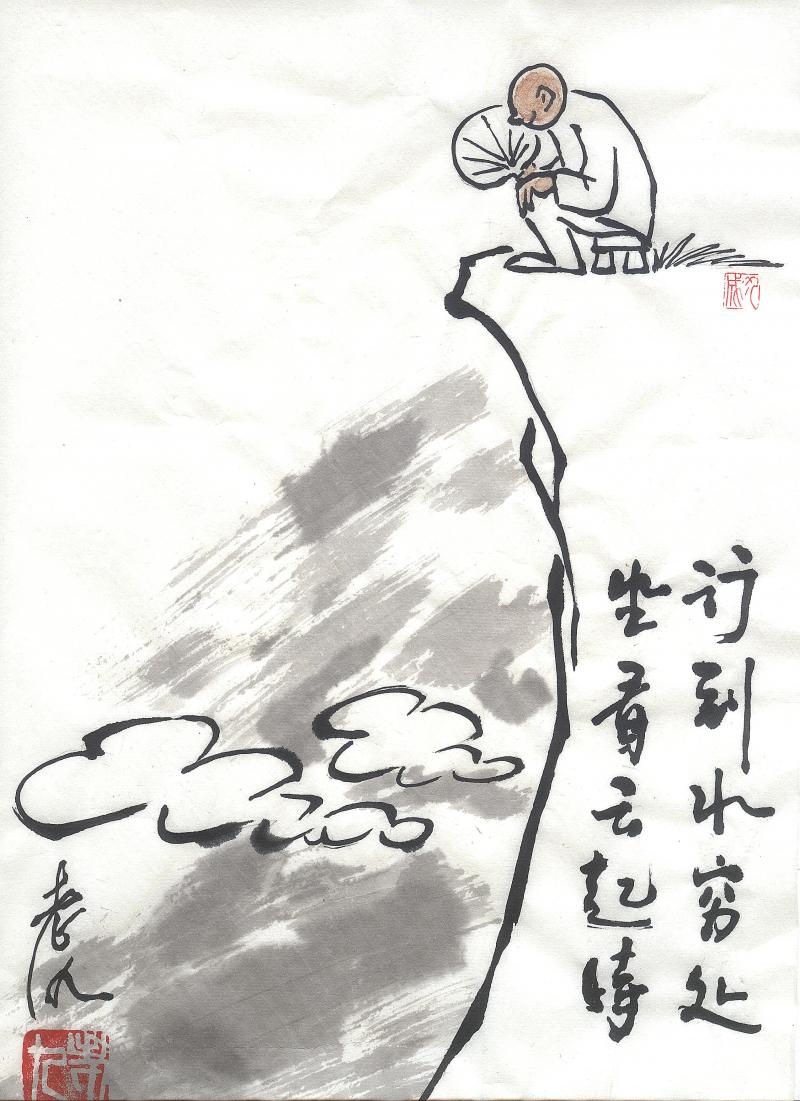 行到水穷处
坐看云起時
老九